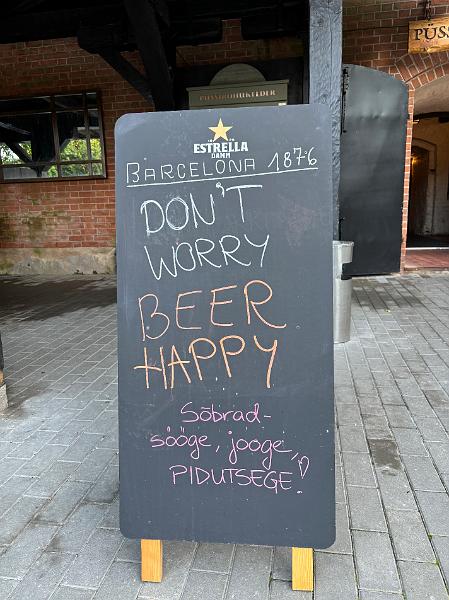 PÜSS
PÜSSIROHUKELDER
ESTRELLA
DAMM
BARCELONA 1876
DON'T
WORRY
BEER
HAPPY
Sõbrad-
sööge, jooge,
PIDUTSEGE!